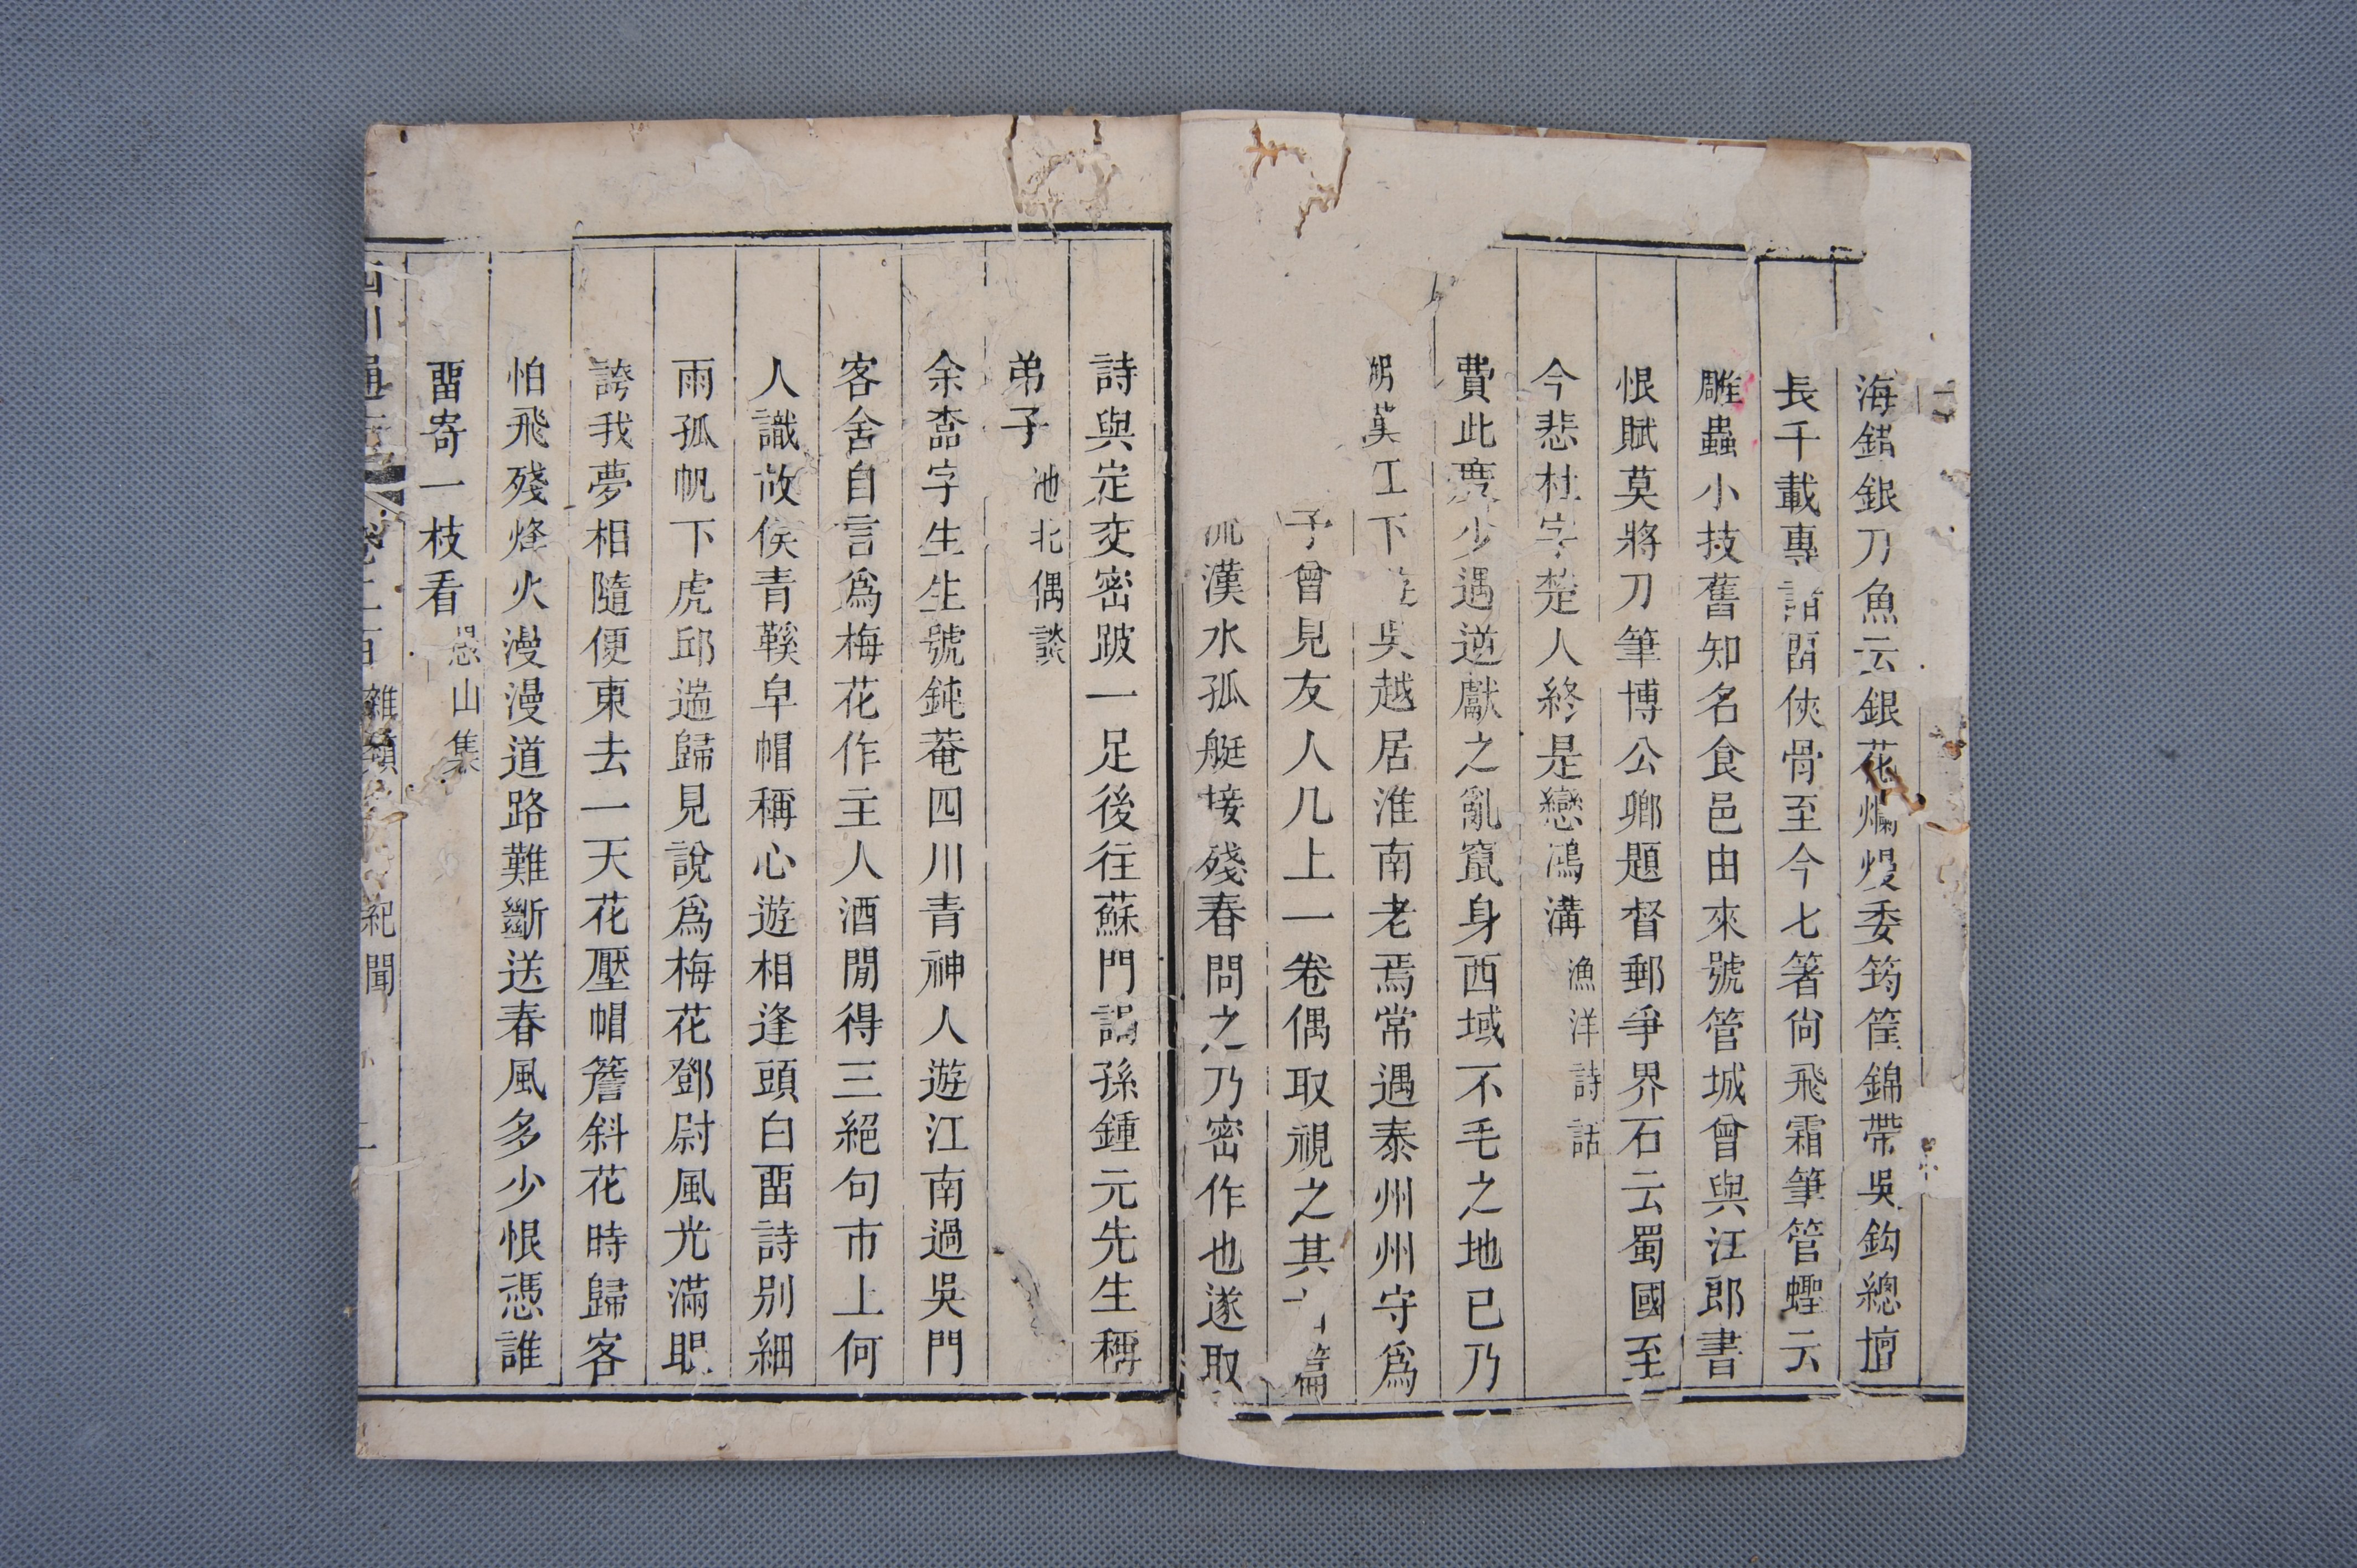 海錯銀刀魚云銀花爛熳委筠筐錦帶吳鈎總擅
長千載專諸留俠骨至今七箸尙飛霜筆管蟶云
雕蟲小技舊知名食邑由來號管城曾與江郎書
恨賦莫將刀筆博公卿題督郵爭界石云蜀國至
今悲杜宇楚人終是戀鴻溝漁洋詩話
費此度少遇逆獻之亂竄身西域不毛之地已乃
下吳越居淮南老焉常遇泰州州守爲
予曾見友人几上一卷偶取視之其篇
流漢水孤艇接殘春問之乃密作也遂取
詩與定交密跛一足後往蘇門謁孫鍾元先生稱
弟子池北偶談
余楍字生生號鈍菴四川青神人遊江南過吳門
客舍自言爲梅花作主人酒閒得三絕句市上何
人識故侯青鞵皁帽稱心遊相逢頭白畱詩別細
雨孤帆下虎邱遄歸見說爲梅花鄧尉風光滿眼
誇我夢相隨便東去一天花壓帽簷斜花時歸客
怕飛殘烽火漫漫道路難斷送春風多少恨憑誰
畱寄一枝看憨山集
四川通志卷二百雜類紀聞二